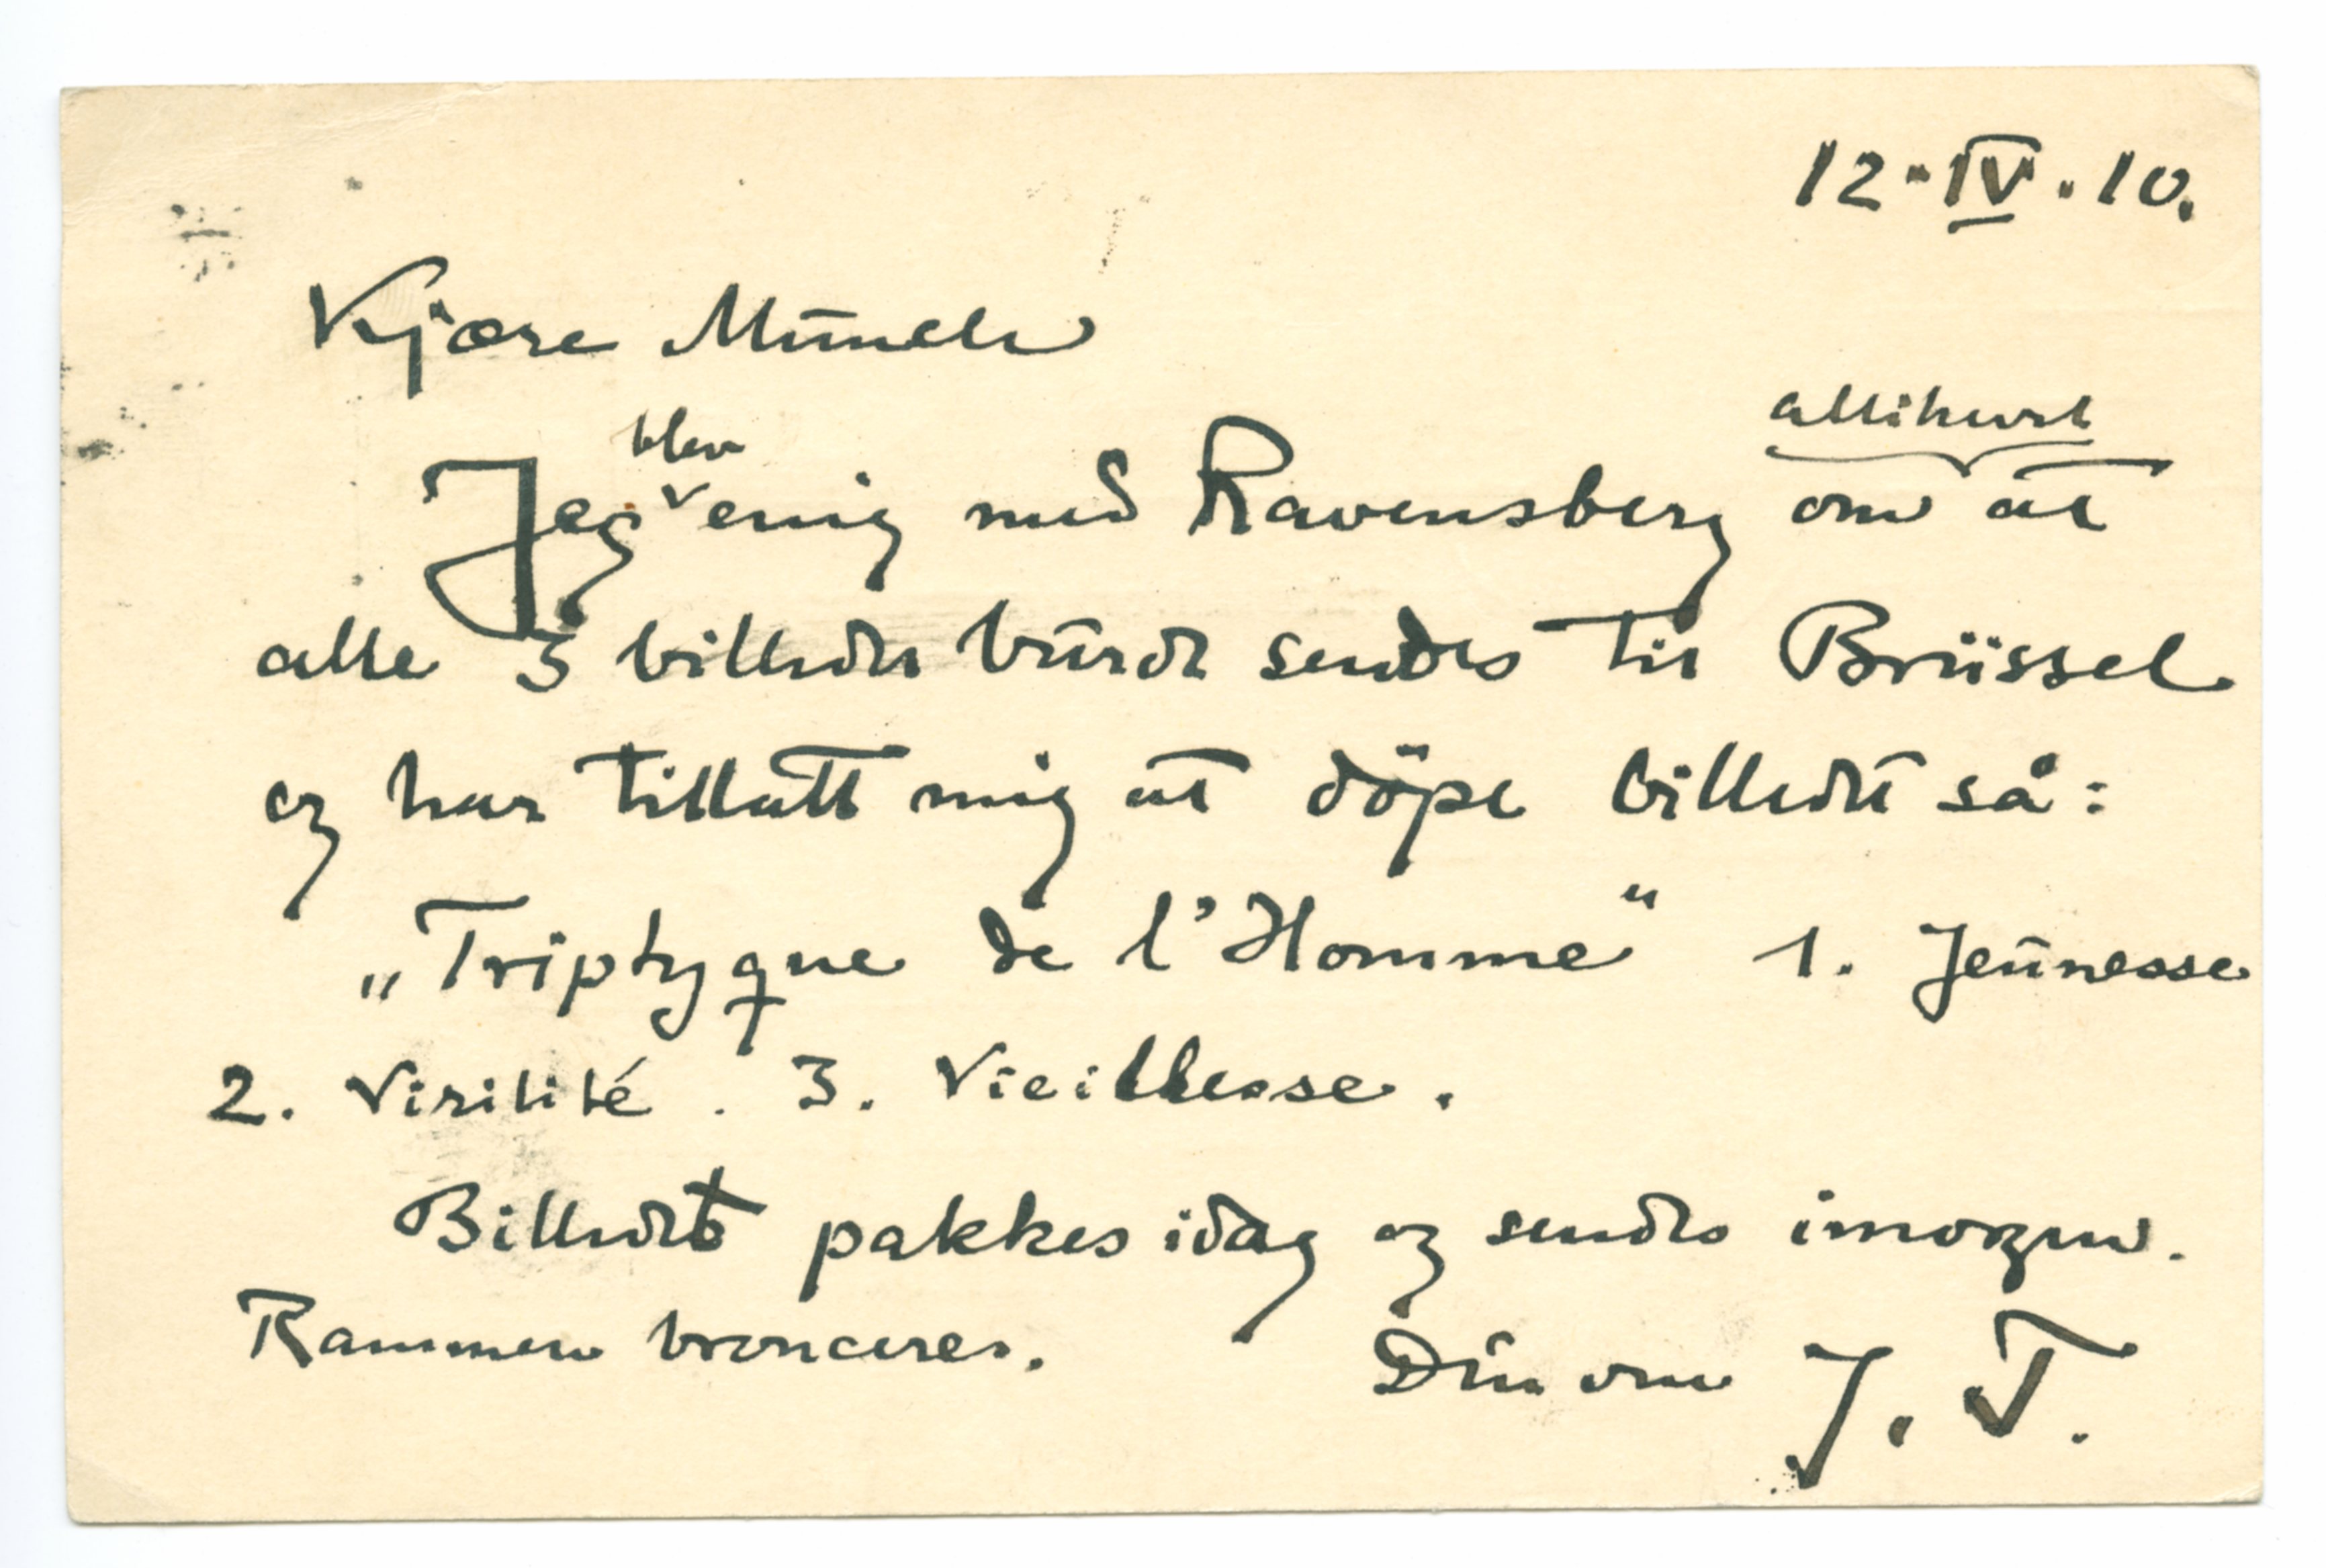 12·IV·10.
Kjære Munch
Jeg blev enig med Ravensberg allikevel om at
alle 3 billeder burde sendes til Brüssel
og har tillatt mig at döpe billedet så:
„Triptyque de l'Homme“ 1. Jeunesse
2. Virilité. 3. Vieillesse.
Billedet pakkes idag og sendes imorgen.
Rammen bronceres. Din ven J. T.